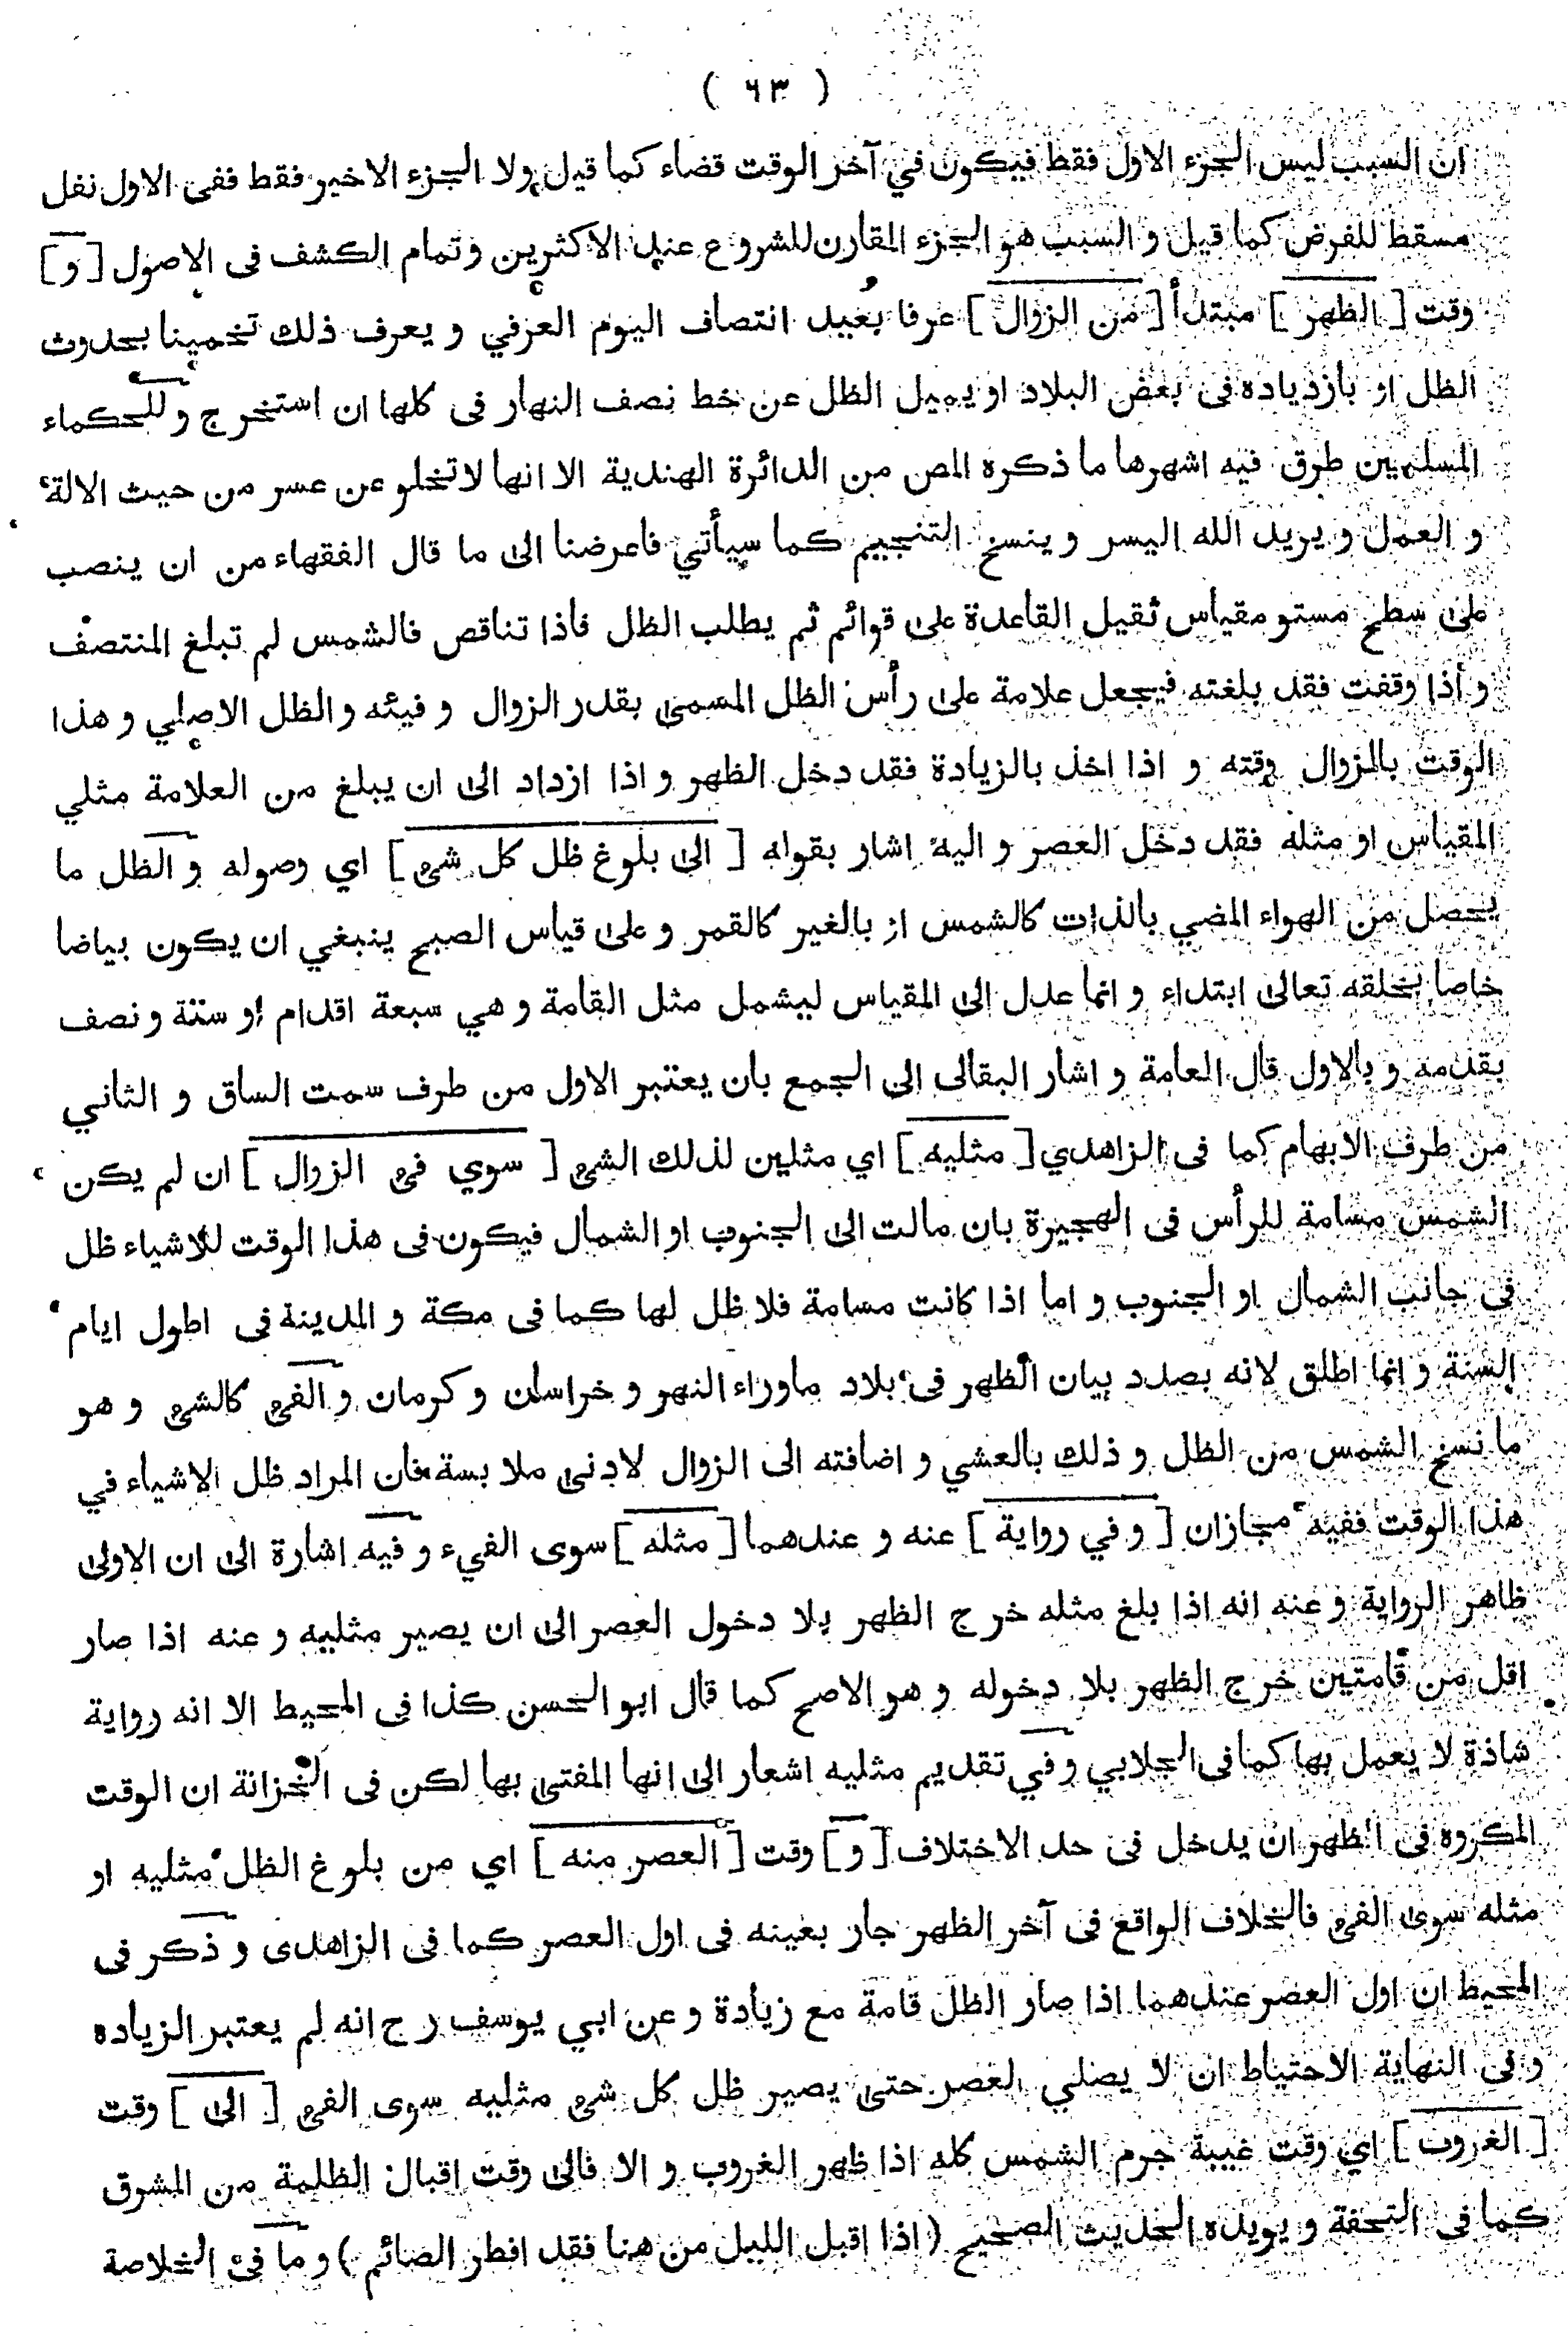 ( ٦٣ )
ان السبب ليس الجزء الاول فقط فيكون في آخر الوقت قضاء كما قيل ولا الجزء الاخير فقط ففى الاول نفل
مسقط للفرض كما قيل و السبب هو الجزء المقارن للشروع عند الاكثرين و تمام الكشف فى الاصول [ و ]
وقت [ الظهر ] مبتدأ [ من الزوال ] عرفا بعيد انتصاف اليوم العرفي و يعرف ذلك تخمينا بحدوث
الظل او بازدياده فى بعض البلاد او يميل الظل عن خط نصف النهار فى كلها ان استخرج و للحكماء
المسلمين طرق فيه اشهرها ما ذكره المص من الدائرة الهندية الا انها لا تخلو عن عسر من حيث الالة
و العمل و يريد الله اليسر و ينسخ التنجيم كما سيأتي فاعرضنا الى ما قال الفقهاء من ان ينصب
على سطح مستو مقياس ثقيل القاعدة على قوائم ثم يطلب الظل فاذا تناقص فالشمس لم تبلغ المنتصف
و أذا وقفت فقد بلغته فيجعل علامة على رأس الظل المسمى بقدر الزوال و فيئه و الظل الاصلي و هذا
الوقت بالزوال وقته و اذا اخذ بالزيادة فقد دخل الظهر و اذا ازداد الى ان يبلغ من العلامة مثلي
المقياس او مثله فقد دخل العصر و اليه اشار بقوله [ الى بلوغ ظل كل شيء ] اي وصوله و الظل ما
يحصل من الهواء المضي بالذات كالشمس او بالغير كالقمر و على قياس الصبح ينبغي ان يكون بياضا
خاصا بخلقه تعالى ابتداء و انما عدل الى المقياس ليشمل مثل القامة و هي سبعة اقدام او ستة و نصف
بقدمه و بالاول قال العامة و اشار البقالى الى الجمع بان يعتبر الاول من طرف سمت الساق و الثاني
من طرف الابهام كما فى الزاهدي [ مثليه ] اي مثلين لذلك الشيء [ سوي فيء الزوال ] ان لم يكن
الشمس مسامة للرأس فى الهجيرة بان مالت الى الجنوب او الشمال فيكون فى هذا الوقت للاشياء ظل
فى جانب الشمال او الجنوب و اما اذا كانت مسامة فلا ظل لها كما فى مكة و المدينة فى اطول ايام
السنة و انما اطلق لانه بصدد بيان الظهر فى بلاد ماوراء النهر و خراسان و كرمان و الفيء كالشيء و هو
ما نسخ الشمس من الظل و ذلك بالعشي و اضافته الى الزوال لادنى ملابسة فان المراد ظل الاشياء في
هذا الوقت ففيه مجازان [ و في رواية ] عنه و عندهما [ مثله ] سوى الفيء و فيه اشارة الى ان الاولى
ظاهر الرواية و عنه انه اذا بلغ مثله خرج الظهر بلا دخول العصر الى ان يصير مثليه و عنه اذا صار
اقل من قامتين خرج الظهر بلا دخوله و هو الاصح كما قال ابو الحسن كذا فى المحيط الا انه رواية
شاذة لا يعمل بها كما فى الجلابي و في تقديم مثليه اشعار الى انها المفتى بها لكن فى الخزانة ان الوقت
المكروه فى الظهر ان يدخل فى حد الاختلاف [ و ] وقت [ العصر منه ] اي من بلوغ الظل مثليه او
مثله سوى الفيء فالخلاف الواقع فى آخر الظهر جار بعينه فى اول العصر كما فى الزاهدى و ذكر فى
المحيط ان اول العصر عندهما اذا صار الظل قامة مع زيادة و عن ابي يوسف رح انه لم يعتبر الزياده
و فى النهاية الاحتياط ان لا يصلي العصر حتى يصير ظل كل شيء مثليه سوى الفيء [ الى ] وقت
[ الغروب ] اي وقت غيبة جرم الشمس كله اذا ظهر الغروب و الا فالى وقت اقبال الظلمة من المشرق
كما فى التحفة و يويده الحديث الصحيح ( اذا اقبل الليل من هنا فقد افطر الصائم ) و ما في الخلاصة